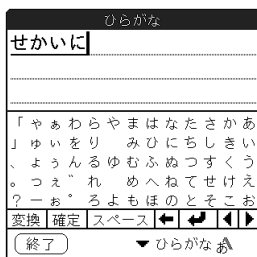 ひらがな
せかいに
「ゃぁわらやまはなたさかあ
」ゅぃをり みひにちしきい
、ょぅんるゆむふぬつすくう
。っぇ゛れ めへねてせけえ
？ーぉ゜ろよもほのとそこお
変換 確定 スペース
終了 ▼ ひらがな あA